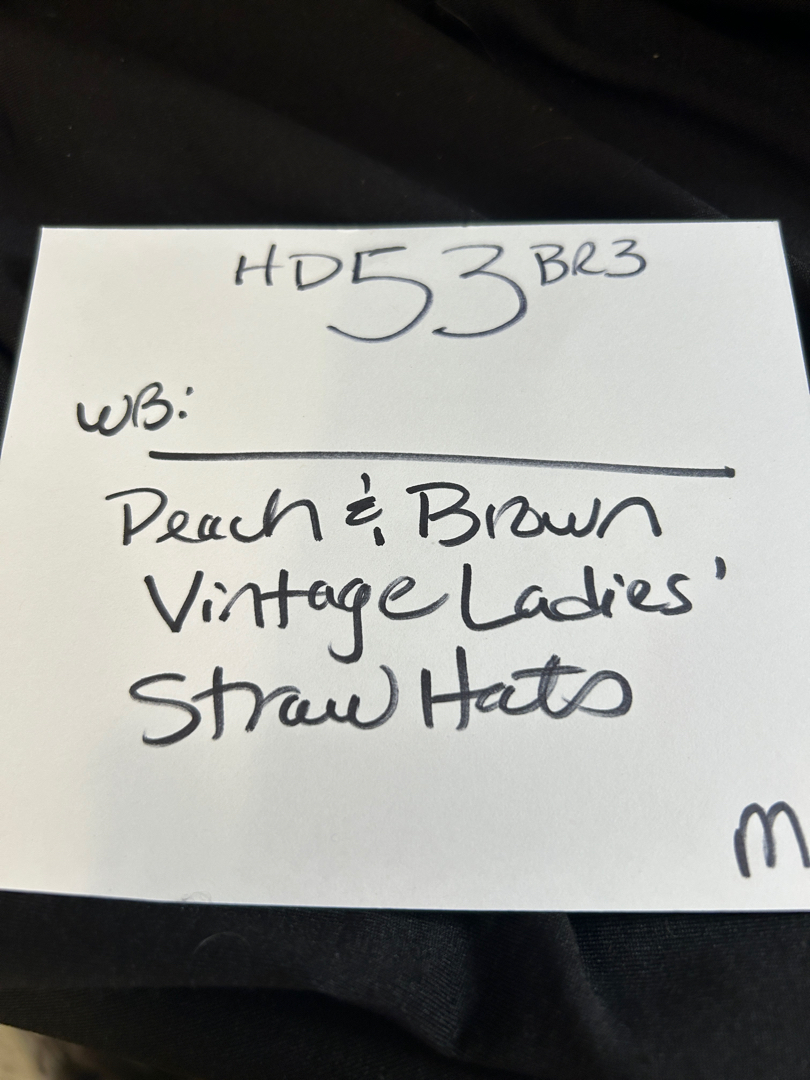 HD53BR3
WB:
Peach & Brown
Vintage Ladies'
Straw Hats
M